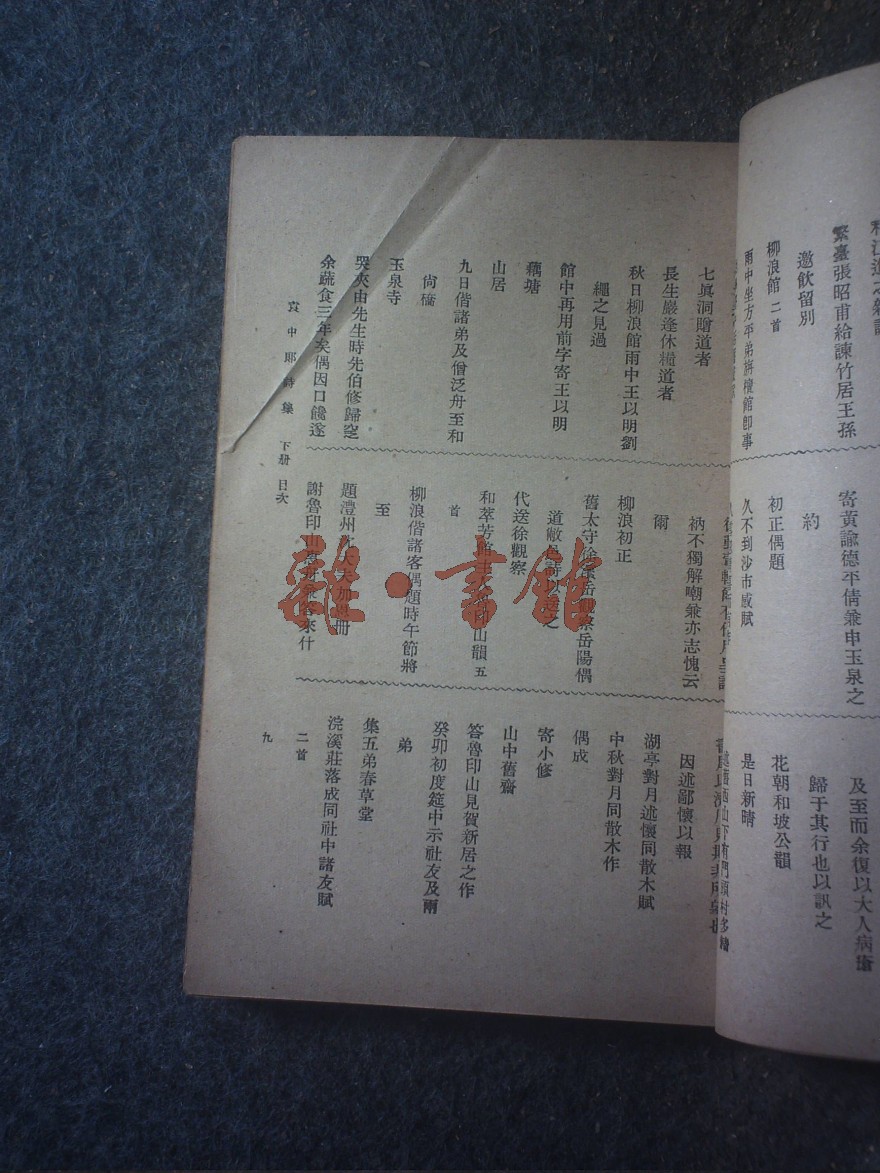 繁臺張昭甫給諫竹居王孫
邀飲留別
柳浪館 二首
雨中坐方平弟栴檀館即事
寄黃諭德平倩兼申玉泉之
約
初正偶題
久不到沙市感賦
及至而余復以大人病瘡
歸于其行也以訊之
花朝和坡公韻
是日新晴
七眞洞贈道者
長生巖逢休糧道者
秋日柳浪館雨中王以明劉
繩之見過
館中再用前字寄王以明
藕塘
山居
九日偕諸弟及僧泛舟至和
尙橋
玉泉寺
哭夾由先生時先伯修歸窆
余蔬食三年矣偶因口饞遂
衲不獨解嘲兼亦志愧云
爾
柳浪初正
舊太守徐
岳陽偶
道
代送徐觀察
和萃芳館主人
印山韻 五
首
柳浪偕諸客偶題時午節將
至
題澧州
冊
謝魯印山
來什
因述鄙懷以報
湖亭對月述懷同散木賦
中秋對月同散木作
偶成
寄小修
山中舊齋
答魯印山見賀新居之作
癸卯初度筵中示社友及兩
弟
集五弟春草堂
浣溪莊落成同社中諸友賦
二首
袁中郎詩集 下册 目次
九
雜·書館